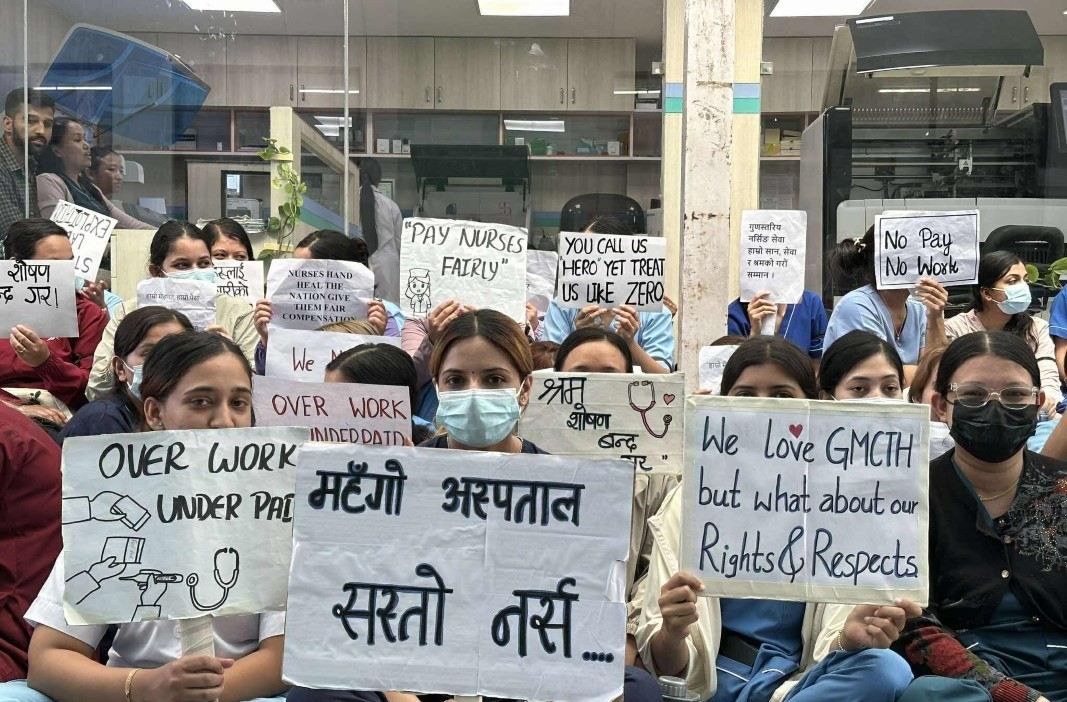 EXPLOITED
शोषण
बन्द गर!
हाम्रो मेहनत, हाम्रो
NURSES HAND
HEAL THE
NATION GIVE
THEM FAIR
COMPENSATION
"PAY NURSES
FAIRLY"
YOU CALL US
"HERO" YET TREAT
US LIKE ZERO
गुणस्तरिय
नर्सिङ सेवा
हाम्रो सान, सेवा
र श्रमको गरौं
सम्मान ।
No Pay
No Work
We
OVER WORK
UNDERPAID
श्रम
शोषण
बन्द
गर"
OVER WORK
UNDER PAI
महँगो अस्पताल
सस्तो नर्स....
We love GMCTH
but what about our
Rights & Respects